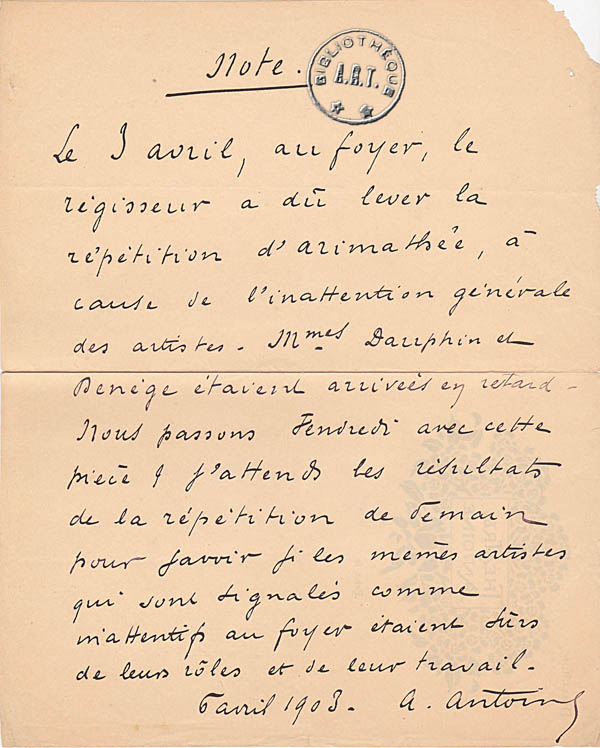 Note.
BIBLIOTHÈQUE
A.R.T.
Le 3 avril, au foyer, le
régisseur a dû lever la
répétition d'arimathée, à
cause de l'inattention générale
des artistes - Mmes Dauphin et
Denège étaient arrivées en retard -
Nous passons Vendredi avec cette
pièce & j'attends les résultats
de la répétition de demain
pour savoir si les mêmes artistes
qui sont signalés comme
inattentifs au foyer étaient sûrs
de leurs rôles et de leur travail -
6 avril 1903 - A. Antoine